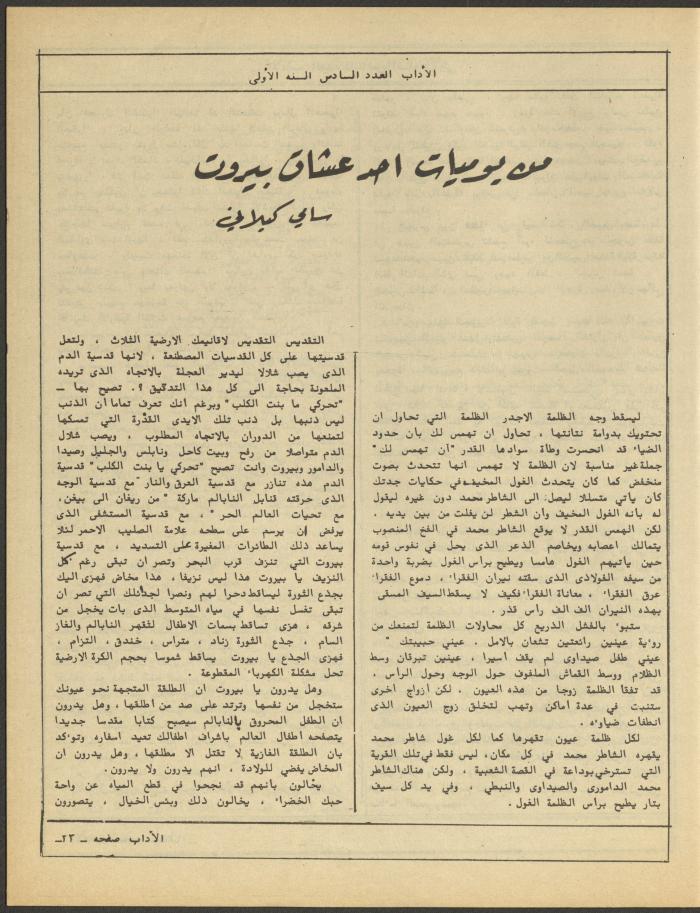 الآداب العدد السادس السنه الأولى
من يوميات احد عشاق بيروت
سامي كيلاني
ليسقط وجه الظلمة الاجدر الظلمة التي تحاول ان
تحتويك بدوامة نتانتها ، تحاول ان تهمس لك بأن حدود
الضياء قد انحسرت وطأة سوادها القدر "ان تهمس لك "
جملة غير مناسبة لان الظلمة لا تهمس انها تتحدث بصوت
منخفض كما كان يتحدث الغول المخيف في حكايات جدتك
كان يأتي متسللا ليصل الى الشاطر محمد دون غيره ليقول
له بأنه الغول المخيف وان الشطر لن يفلت من بين يديه .
لكن الهمس القذر لا يوقع الشاطر محمد في الفخ المنصوب
يتمالك اعصابه ويخاصم الذعر الذى يحل في نفوس قومه
حين يأتيهم الغول هامسا ويطيح برأس الغول بضربة واحدة
من سيفه الفولاذى الذى سقته نيران الفقراء ، دموع الفقراء
عرق الفقراء ، معاناة الفقراء فكيف لا يسقط السيف المسقى
بهذه النيران الف الف راس قذر .
ستبوء بالفشل الذريع كل محاولات الظلمة لتمنعك من
رؤية عينين رائعتين تشعان بالامل . عيني حبيبتك "
عيني طفل صيداوى لم يقف أسيرا ، عينين تبرقان وسط
الظلام ووسط القماش الملفوف حول الوجه وحول الرأس .
قد تفقأ الظلمة زوجا من هذه العيون . لكن أزواج أخرى
ستنبت في عدة أماكن وتهب لتخلق زوج العيون الذى
انطفأت ضياؤه .
لكل ظلمة عيون تقهرها كما لكل غول شاطر محمد
يقهره الشاطر محمد في كل مكان، ليس فقط في تلك القرية
التي تسترخي بوداعة في القصة الشعبية ، ولكن هناك الشاطر
محمد الدامورى والصيداوى والنبطي ، وفي يد كل سيف
بتار يطيح برأس الظلمة الغول .
التقديس التقديس لاقانيمك الارضية الثلاث ، ولتعل
قدسيتها على كل القدسيات المصطنعة ، لانها قدسية الدم
الذى يصب شلالا ليدير العجلة بالاتجاه الذى تريده
الملعونة بحاجة الى كل هذا التدقيق ؟. تصيح بها ـ
"تحركي ما بنت الكلب" وبرغم أنك تعرف تماما أن الذنب
ليس ذنبها بل ذنب تلك الايدى القذرة التي تمسكها
لتمنعها من الدوران بالاتجاه المطلوب ، ويصب شلال
الدم متواصلا من رفح وبيت كاحل ونابلس والجليل وصيدا
والدامور وبيروت وانت تصيح "تحركي يا بنت الكلب " قدسية
الدم هذه تتازر مع قدسية العرق والنار "مع قدسية الوجه
الذى حرقته قنابل النابالم ماركة " من ريغان الى بيغن،
مع تحيات العالم الحر " ، مع قدسية المستشفى الذى
يرفض ان يرسم على سطحه علامة الصليب الاحمر لئلا
يساعد ذلك الطائرات المغيرة على التسديد ، مع قدسية
بيروت التي تنزف قرب البحر وتصر ان تبقى رغم كل
النزيف يا بيروت هذا ليس نزيفا ، هذا مخاض فهزى اليك
بجذع الثورة ليساقط دحرا لهم ونصرا لجذلك التي تصر ان
تبقى تغسل نفسها في مياه المتوسط الذى بات يخجل من
شرقه ، هزى تساقط بسمات الاطفال لتقهر النابالم والغاز
السام ، جذع الثورة زناد ، متراس ، خندق ، التزام ،
فهزى الجذع يا بيروت يساقط شموسا بحجم الكرة الارضية
تحل مشكلة الكهرباء المقطوعة .
وهل يدرون يا بيروت ان الطلقة المتجهة نحو عيونك
ستخجل من نفسها وترتد على صد من أطلقها ، وهل يدرون
ان الطفل المحروق بالنابالم سيصبح كتابا مقدسا جديدا
يتصفحه أطفال العالم باشراف اطفالك تعيد أسفاره وتؤكد
بان الطلقة الغازية لا تقتل الا مطلقها ، وهل يدرون ان
المخاض يفضي للولادة ، انهم يدرون ولا يدرون.
يخالون بأنهم قد نجحوا في قطع المياه عن واحة
حبك الخضراء ، يخالون ذلك وبئس الخيال ، يتصورون
الآداب صفحه ـ ٢٣ـ